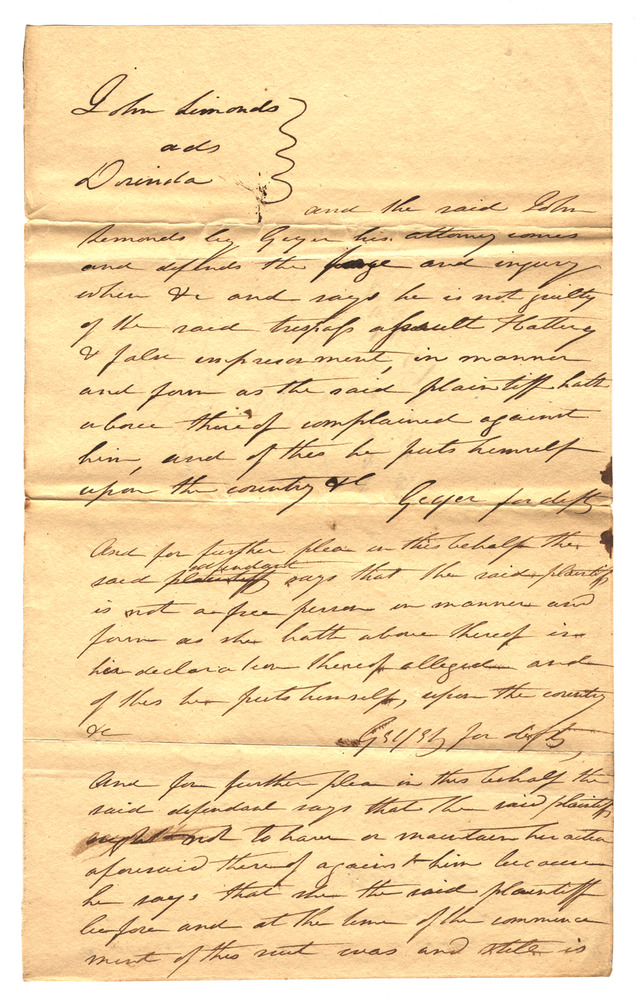 John Simonds
ads
Dorinda
and the said John
Simonds by Geyer his attorney comes
and defends the force and injury
when &c and says he is not guilty
of the said trespass assault & battery
& false imprisonment, in manner
and form as the said plaintiff hath
above thereof complained against
him, and of this he puts himself
upon the country &c Geyer for deft
And for further plea in this behalf the
defendant
said plaintiff says that the said plaintiff
is not a free person in manner and
form as she hath above thereof in
his declaration thereof alleged and
of this he puts himself, upon the country
&c Geyer for deft,
And for further plea in this behalf the
said defendant says that the said plaintiff
ought not to have or maintain her action
aforesaid thereof against him because
he says that she the said plaintiff
before and at the time of the commence
ment of this suit was and still is